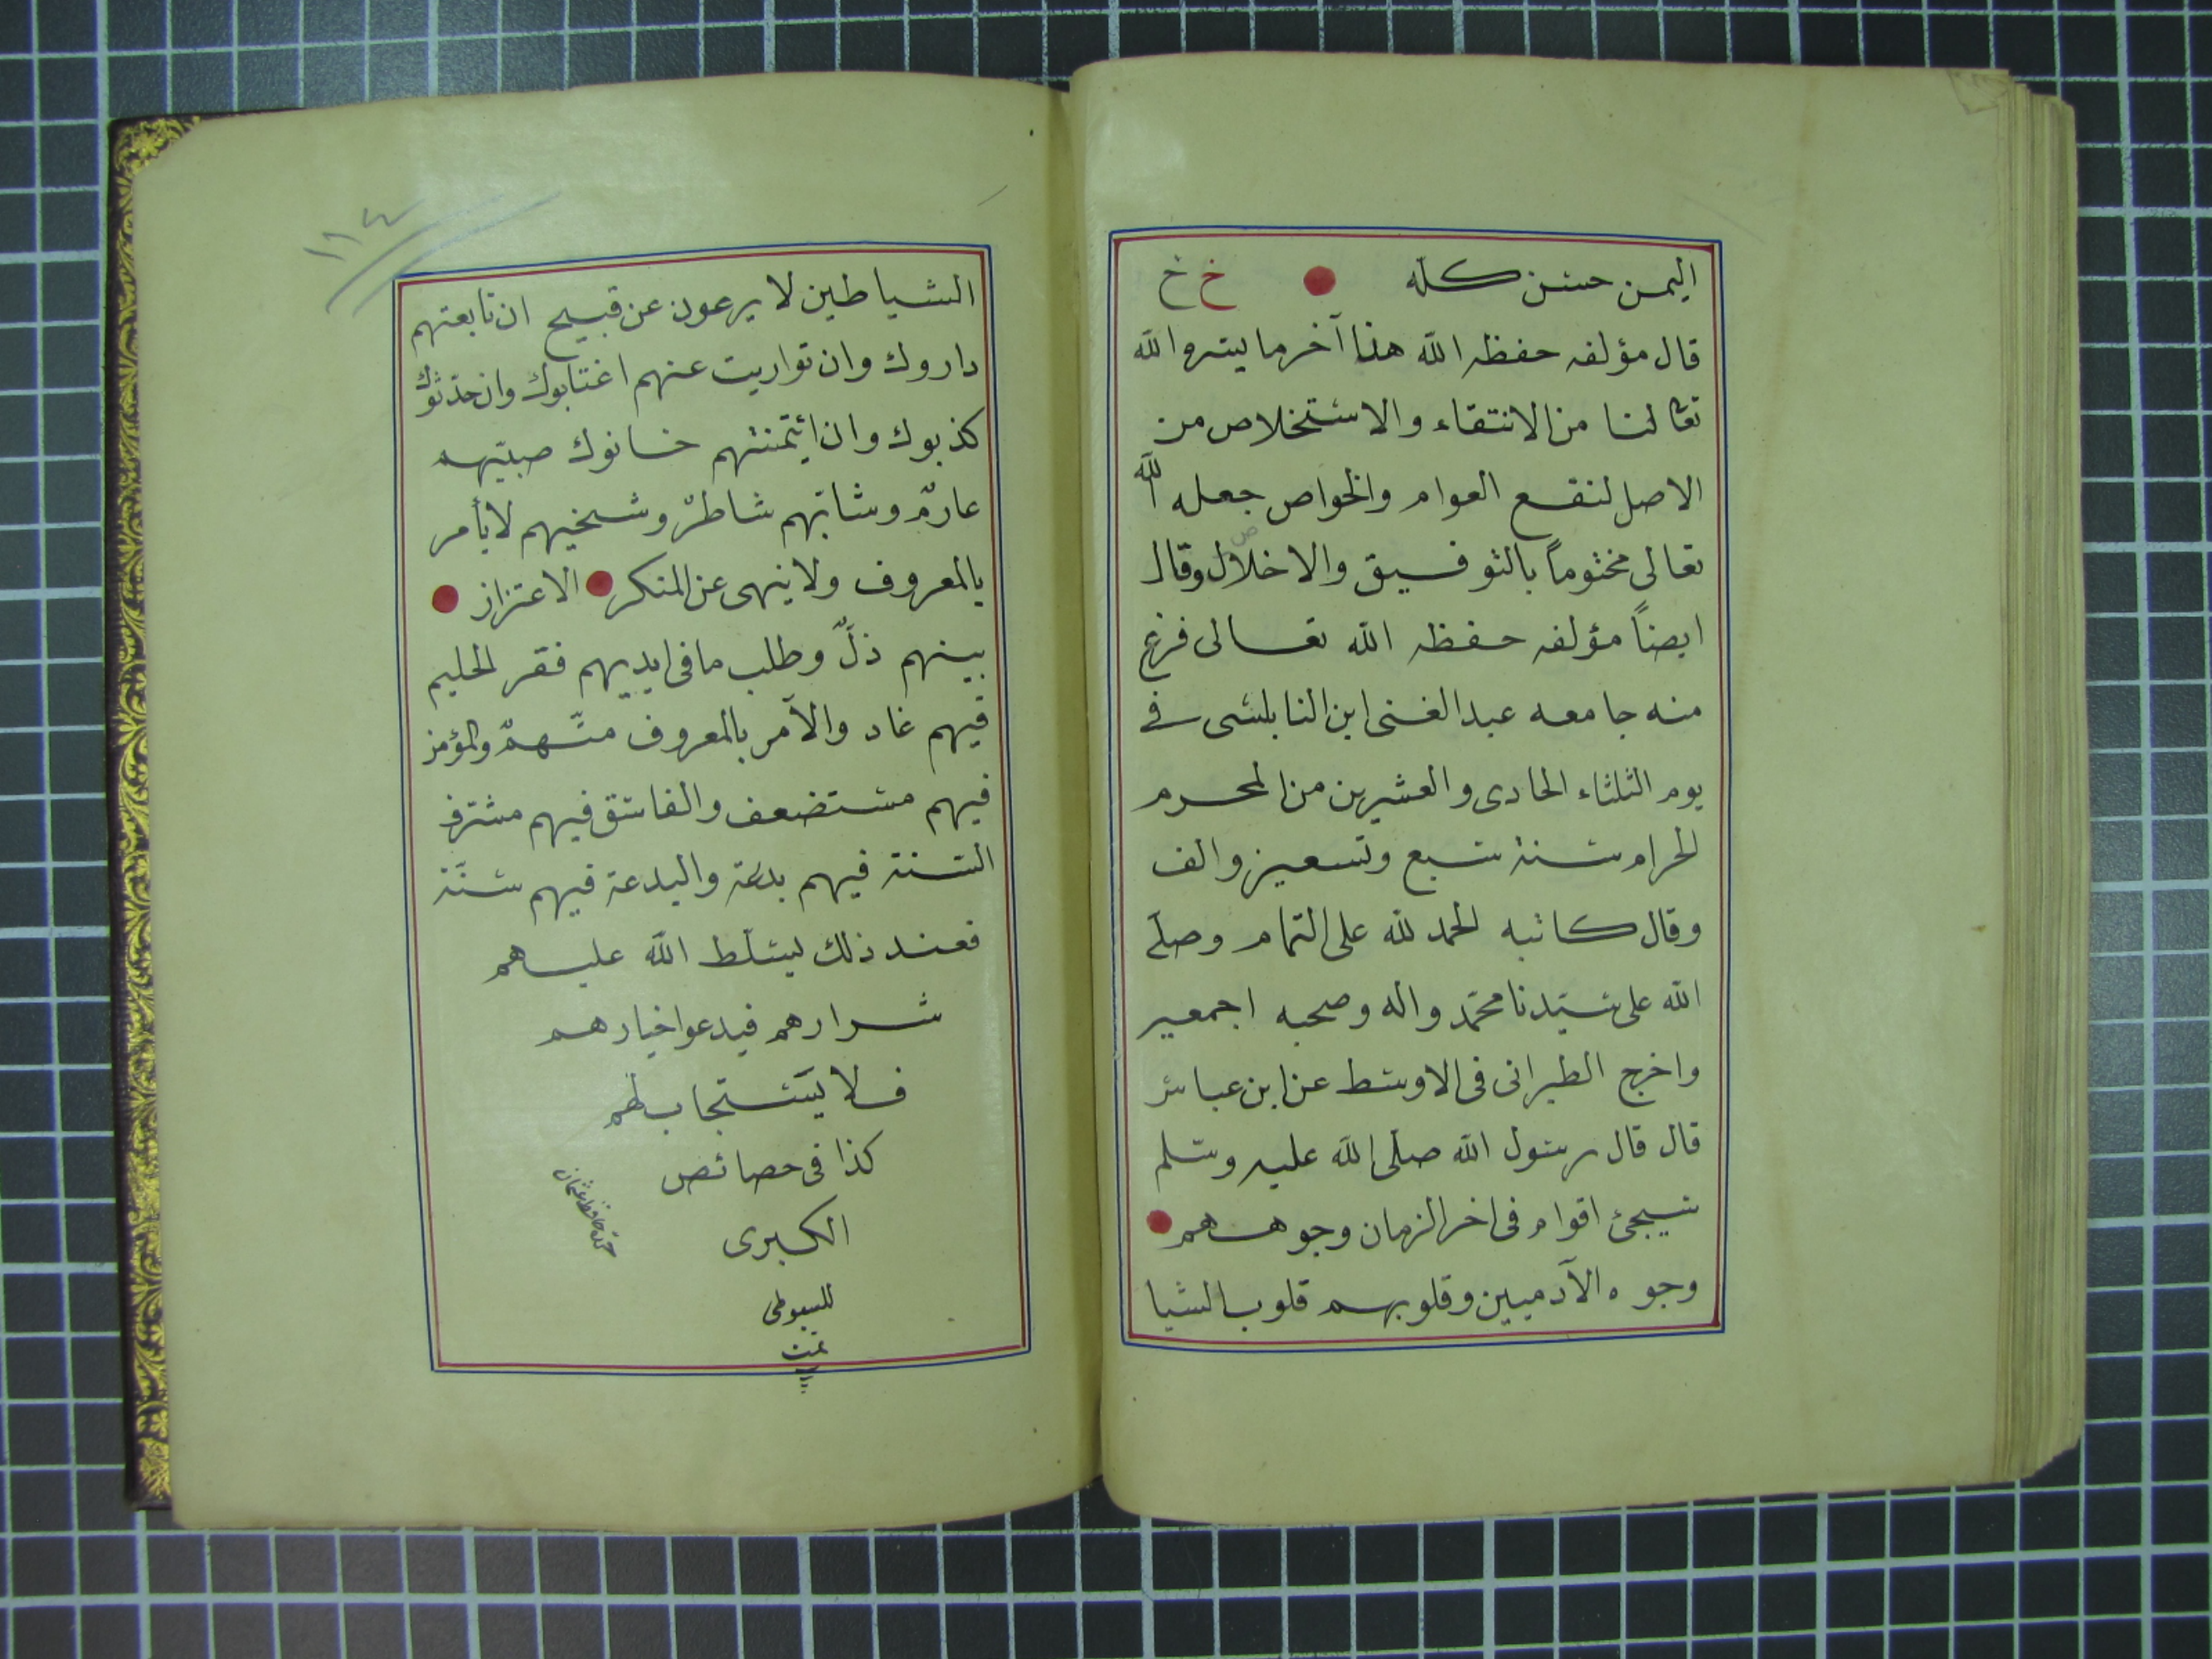 اليمن حسن كله خ خ
قال مؤلفه حفظه الله هذا آخر ما يسره الله
تعا لنا من الانتقاء والاستخلاص من
الاصل لنفع العوام والخواص جعله الله
تعالى مختوماً بالتوفيق والاخلال وقال
ص
ايضاً مؤلفه حفظه الله تعالى فرغ
منه جامعه عبد الغنى ابن النابلسى فى
يوم الثلثاء الحادى والعشرين من المحرم
الحرام سنة سبع وتسعين والف
وقال كاتبه الحمد لله على التمام وصلّى
الله على سيّدنا محمّد واله وصحبه اجمعين
واخرج الطبرانى فى الاوسط عن ابن عباس
قال قال رسول الله صلّى الله عليه وسلم
سيجئ اقوام فى اخر الزمان وجوههم
وجوه الآدميين وقلوبهم قلوب الشيا
١١٤
الشياطين لا يرعون عن قبيح ان تابعتهم
داروك وان تواريت عنهم اغتابوك وان حدّثوك
كذبوك وان ائتمنتهم خانوك صبيّهم
عارمٌ وشابّهم شاطرٌ وشيخهم لا يأمر
بالمعروف ولا ينهى عن المنكر الاعتزاز
بينهم ذلٌّ وطلب ما فى ايديهم فقر الحليم
فيهم غاد والآمر بالمعروف متّهمٌ والمؤمن
فيهم مستضعف والفاسق فيهم مشرف
السنة فيهم بدعة والبدعة فيهم سنّة
فعند ذلك يسلّط الله عليهم
شرارهم فيدعوا خيارهم
فلا يَستجاب لهم
كذا فى حصائص
الكبرى
للسيوطى
تمت
حافظ عثمان